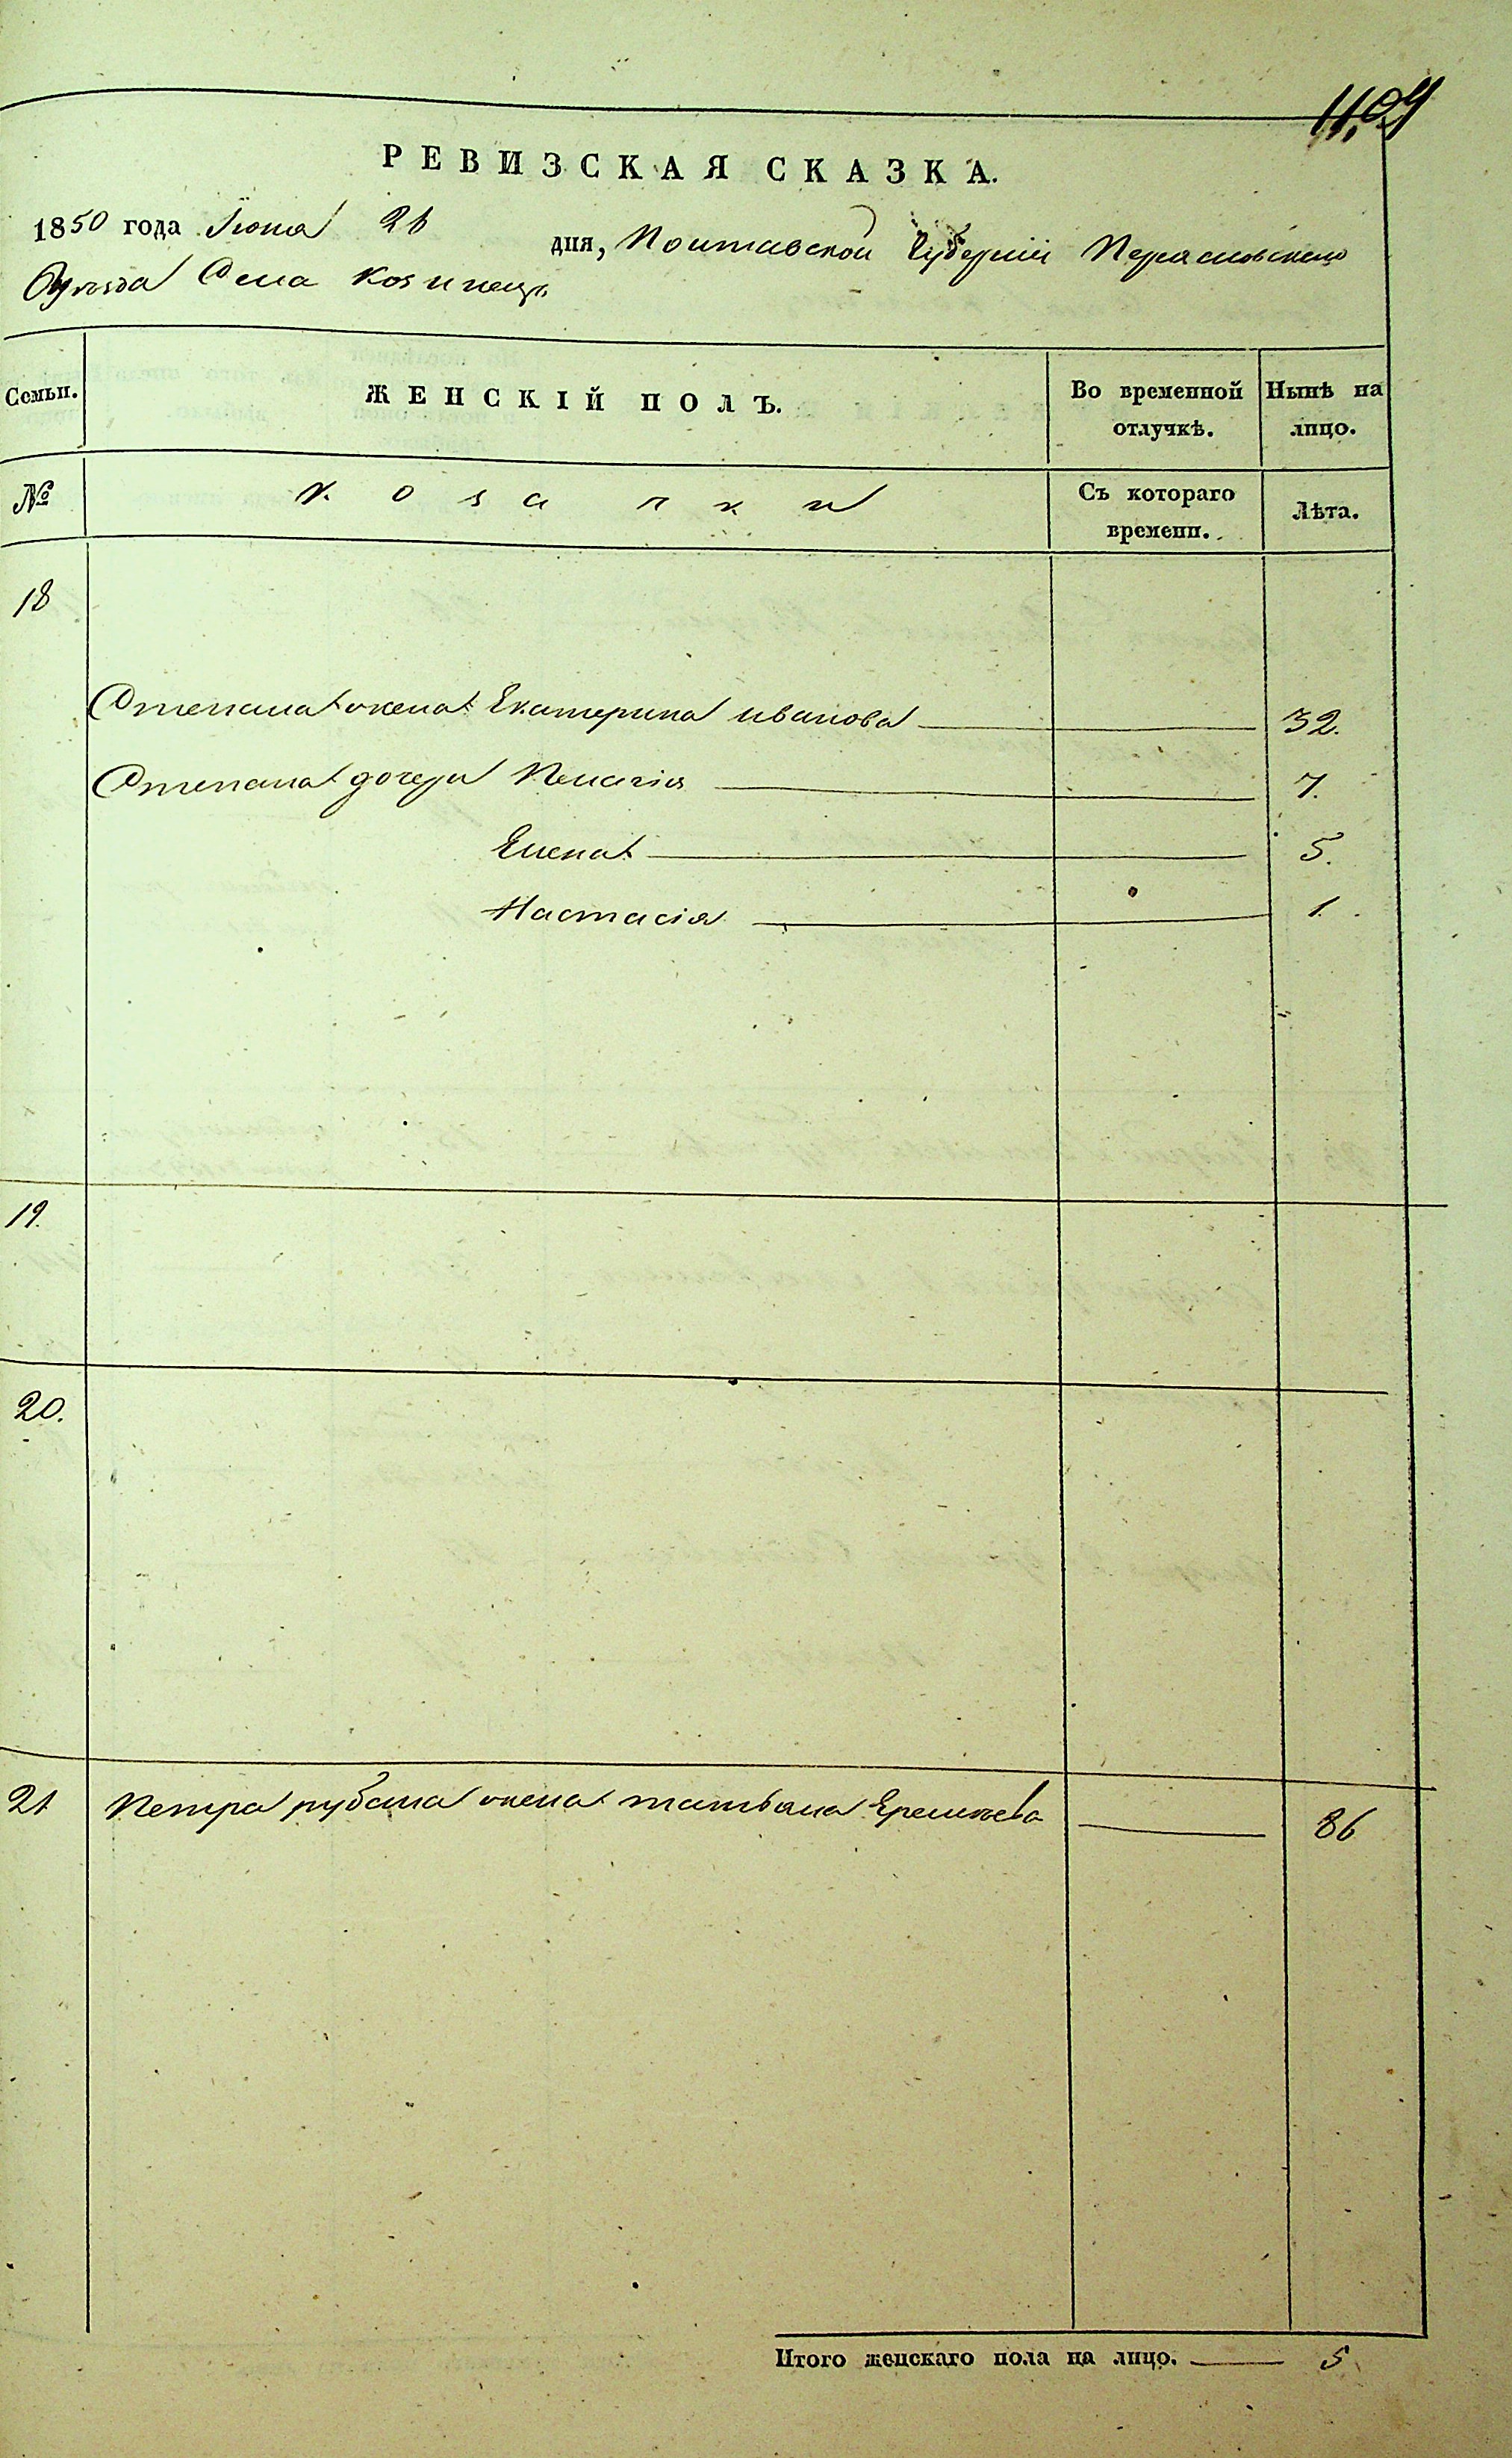 1109
РЕВИЗСКАЯ СКАЗКА.
1850 года Іюня 26 дня, Полтавской Губерніи Переясловскаго
Оуъезда Села Козинецъ
Семьи. ЖЕНСКІЙ ПОЛЪ. Во временной отлучкѣ. Нынѣ на лицо.
№ Козачки Съ котораго времени. Лѣта.
18
Степана жена Екатерина иванова 32.
Степана дочери Пелагія 7.
Елена 5.
Настасія 1.
19.
20.
21 Петра рубана жена татьяна Еремѣева 86
Итого женскаго пола на лицо. 5